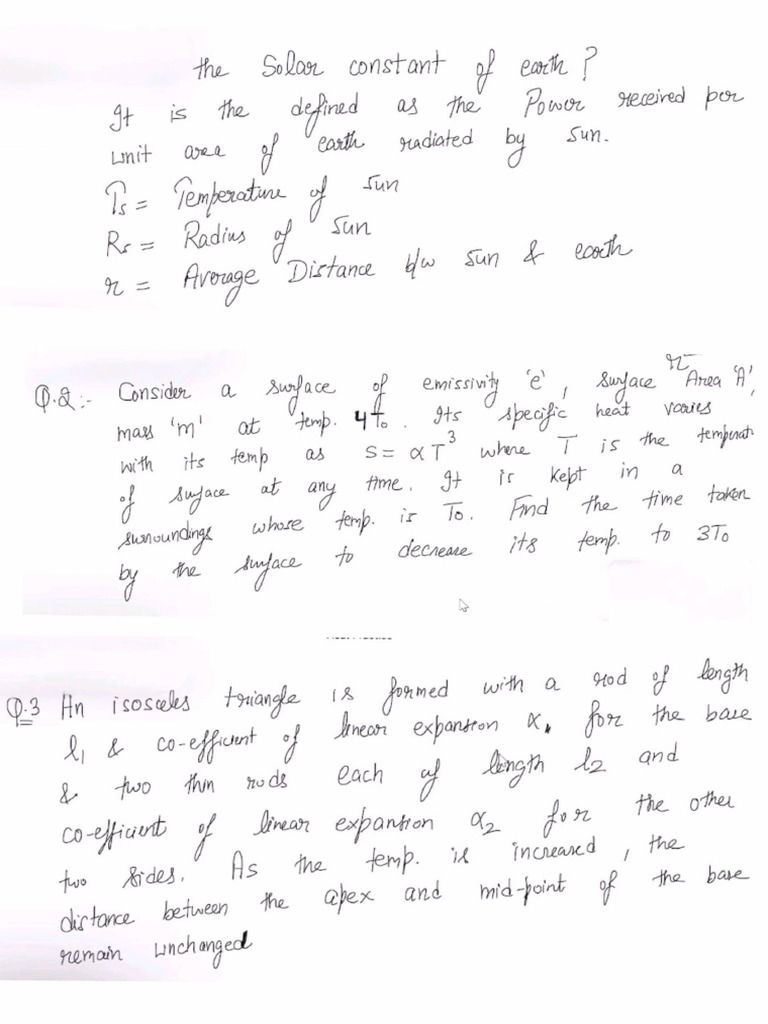 the Solar constant of earth?
It is the defined as the Power received per
unit area of earth radiated by sun.
Ts = Temperature of sun
Rs = Radius of sun
r = Average Distance b/w sun & earth
Q.2:- Consider a surface of emissivity 'e', surface Area 'A',
mass 'm' at temp. 4T₀. Its specific heat varies
with its temp as S = αT³ where T is the temperat
of surface at any time. It is kept in a
surroundings whose temp. is T₀. Find the time taken
by the surface to decrease its temp. to 3T₀
Q.3 An isosceles triangle is formed with a rod of length
l₁ & co-efficient of linear expansion α₁ for the base
& two thin rods each of length l₂ and
co-efficient of linear expansion α₂ for the other
two sides. As the temp. is increased, the
distance between the apex and mid-point of the base
remain unchanged